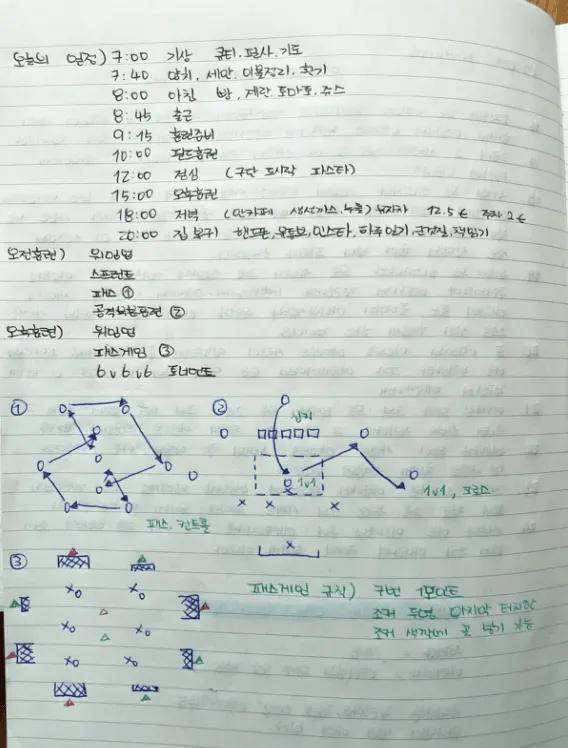 오늘의 일정) 7:00 기상 큐티.필사.기도
7:40 양치, 세안, 이불정리, 환기
8:00 아침 빵, 계란, 토마토, 쥬스
8:45 출근
9:15 훈련준비
10:00 필드훈련
12:00 점심 (구단 파스타)
15:00 오후훈련
18:00 저녁 (만카페 생선까스, 누들) 유자차 12.5€ 주차 2€
20:00 집 복귀 핸드폰, 유튜브, 인스타, 하루일기, 군것질, 책읽기
오전훈련) 워밍업
스프린트
패스 ①
②
오후훈련) 워밍업
패스게임 ③
6v6v6 토너먼트
①
②
1v1
1v1, 크로스
패스, 컨트롤
③
패스게임 규칙) 9번 1포인트
조커 두명 마지막 터치한
조커 색깔에 골 넣기 가능